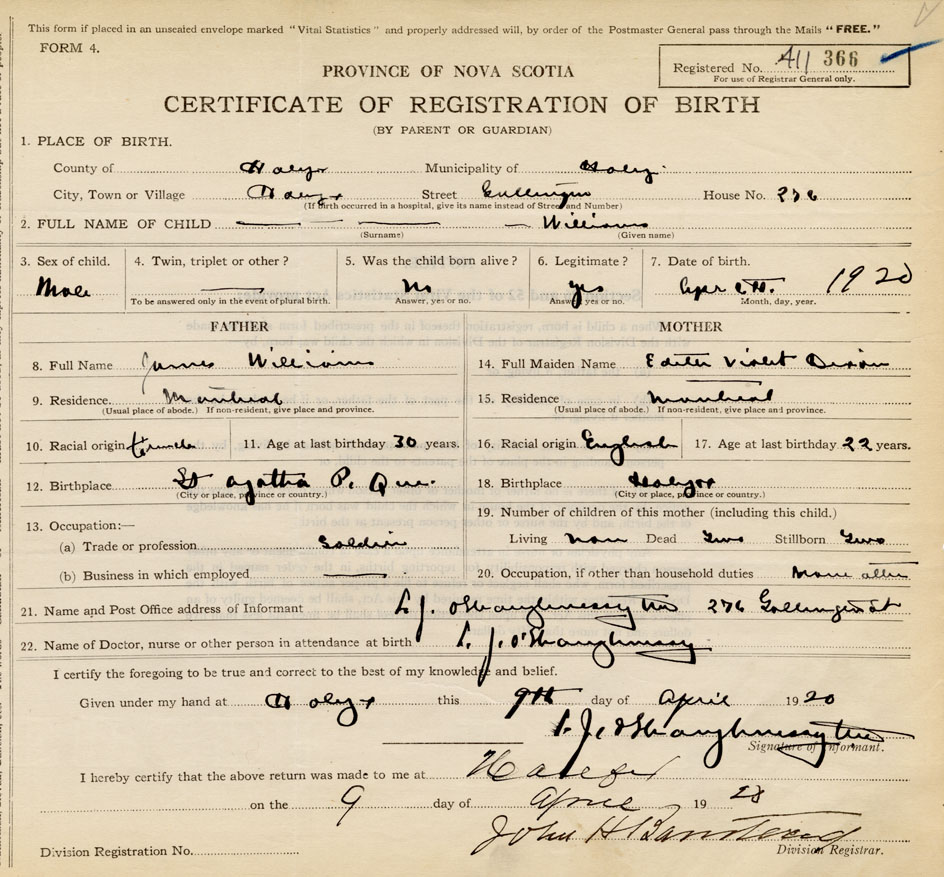 This form if placed in an unsealed envelope marked "Vital Statistics" and properly addressed will, by order of the Postmaster General pass through the Mails "FREE."
FORM 4.
Registered No. 366
For use of Registrar General only.
PROVINCE OF NOVA SCOTIA
CERTIFICATE OF REGISTRATION OF BIRTH
(BY PARENT OR GUARDIAN)
1. PLACE OF BIRTH.
County of Municipality of
City, Town or Village Street House No. 276
(If birth occurred in a hospital, give its name instead of Street and Number)
2. FULL NAME OF CHILD — — — Williams
(Surname) (Given name)
3. Sex of child. 4. Twin, triplet or other? 5. Was the child born alive? 6. Legitimate? 7. Date of birth.
Male — No yes 1920
To be answered only in the event of plural birth. Answer, yes or no. Answer, yes or no. Month, day, year.
FATHER MOTHER
8. Full Name James Williams 14. Full Maiden Name Edith Violet
9. Residence. Montreal 15. Residence Montreal
(Usual place of abode.) If non-resident, give place and province. (Usual place of abode.) If non-resident, give place and province.
10. Racial origin French 11. Age at last birthday 30 years. 16. Racial origin English 17. Age at last birthday 22 years.
12. Birthplace St Agatha P. Que. 18. Birthplace
(City or place, province or country.) (City or place, province or country.)
13. Occupation:— 19. Number of children of this mother (including this child.)
(a) Trade or profession Soldier Living Dead Two Stillborn Two
(b) Business in which employed — 20. Occupation, if other than household duties None
21. Name and Post Office address of Informant J. O'Shaughnessy 276
22. Name of Doctor, nurse or other person in attendance at birth J. O'Shaughnessy
I certify the foregoing to be true and correct to the best of my knowledge and belief.
Given under my hand at this 9th day of April 1920
J. O'Shaughnessy
Signature of Informant.
I hereby certify that the above return was made to me at Halifax
on the 9 day of April 19
John H
Division Registration No. Division Registrar.